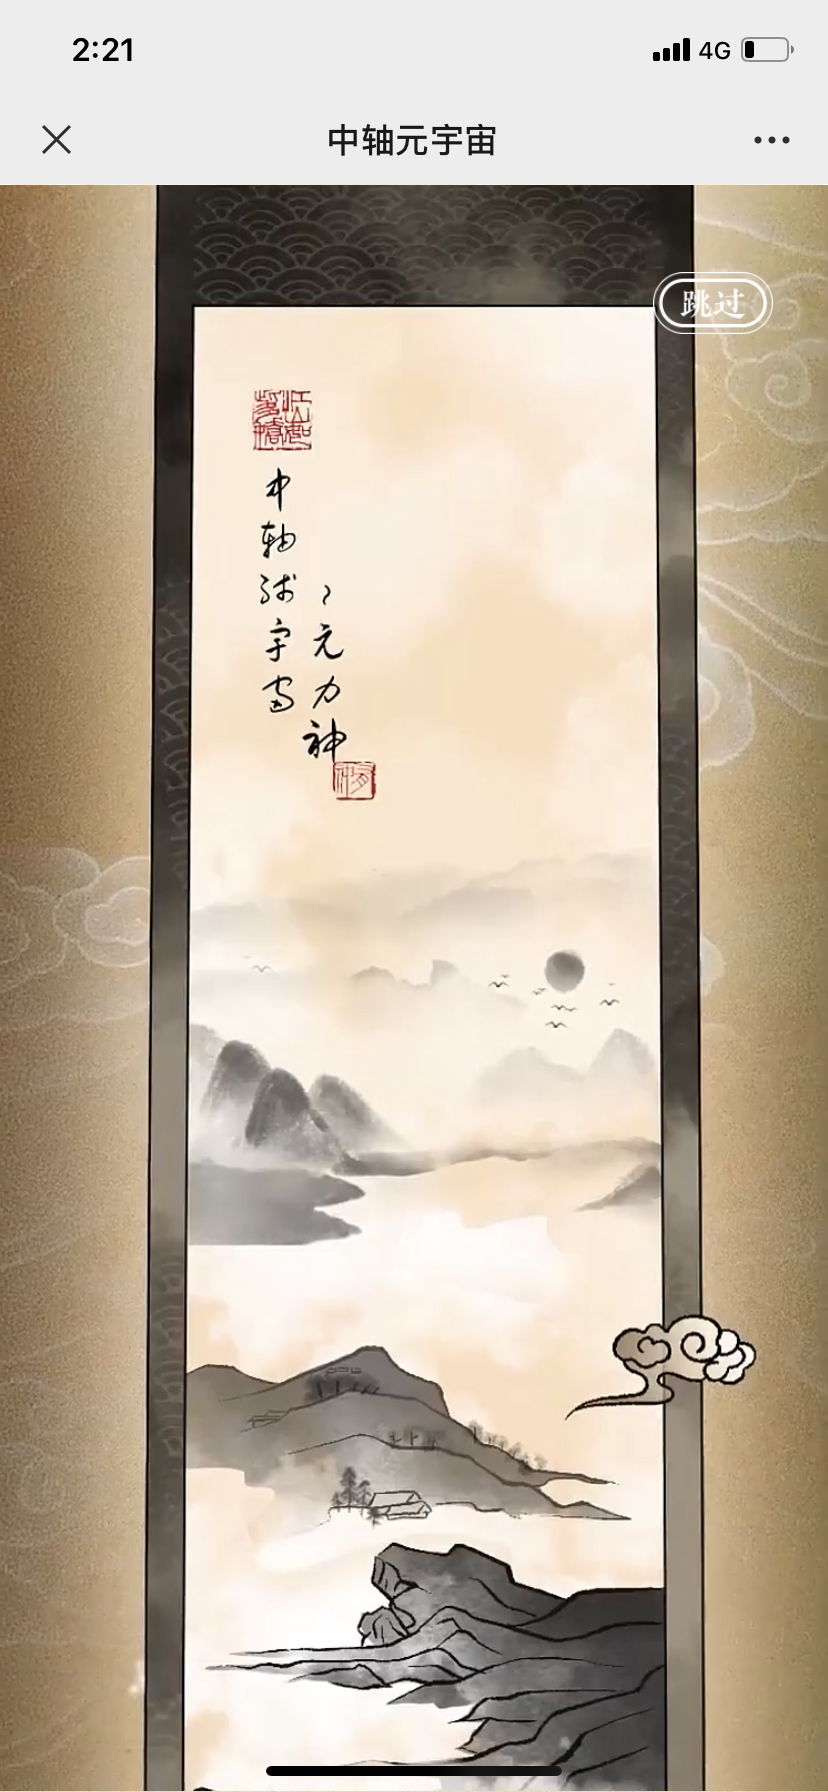 2:21
4G
中轴元宇宙
跳过
中轴
宇宙
元力神